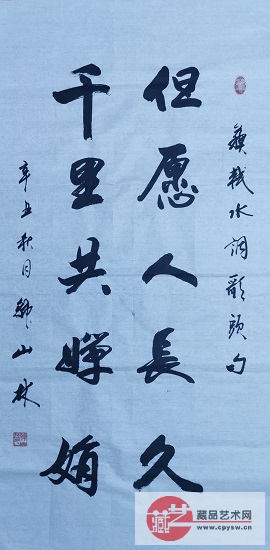 蘇軾水調歌頭句
但愿人長久
千里共嬋娟
辛丑秋月韩山林
藏品艺术网
www.cpysw.cn